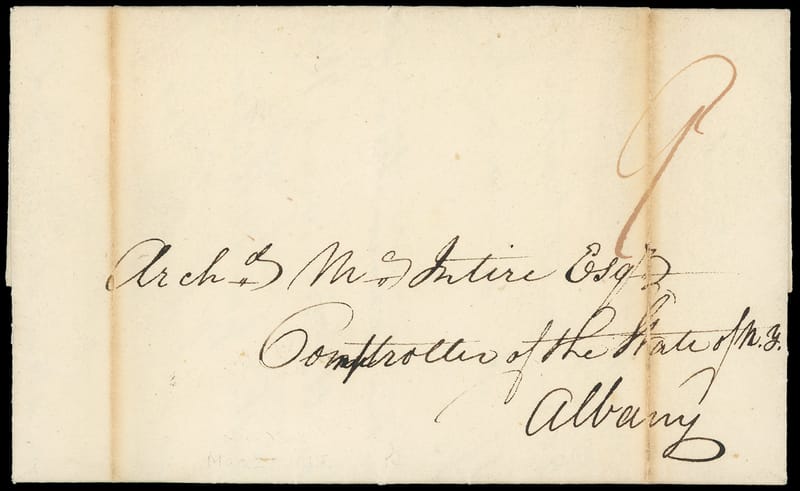 9
Archd Mc Intire Esqr
Comptroller of the State of N.Y.
Albany